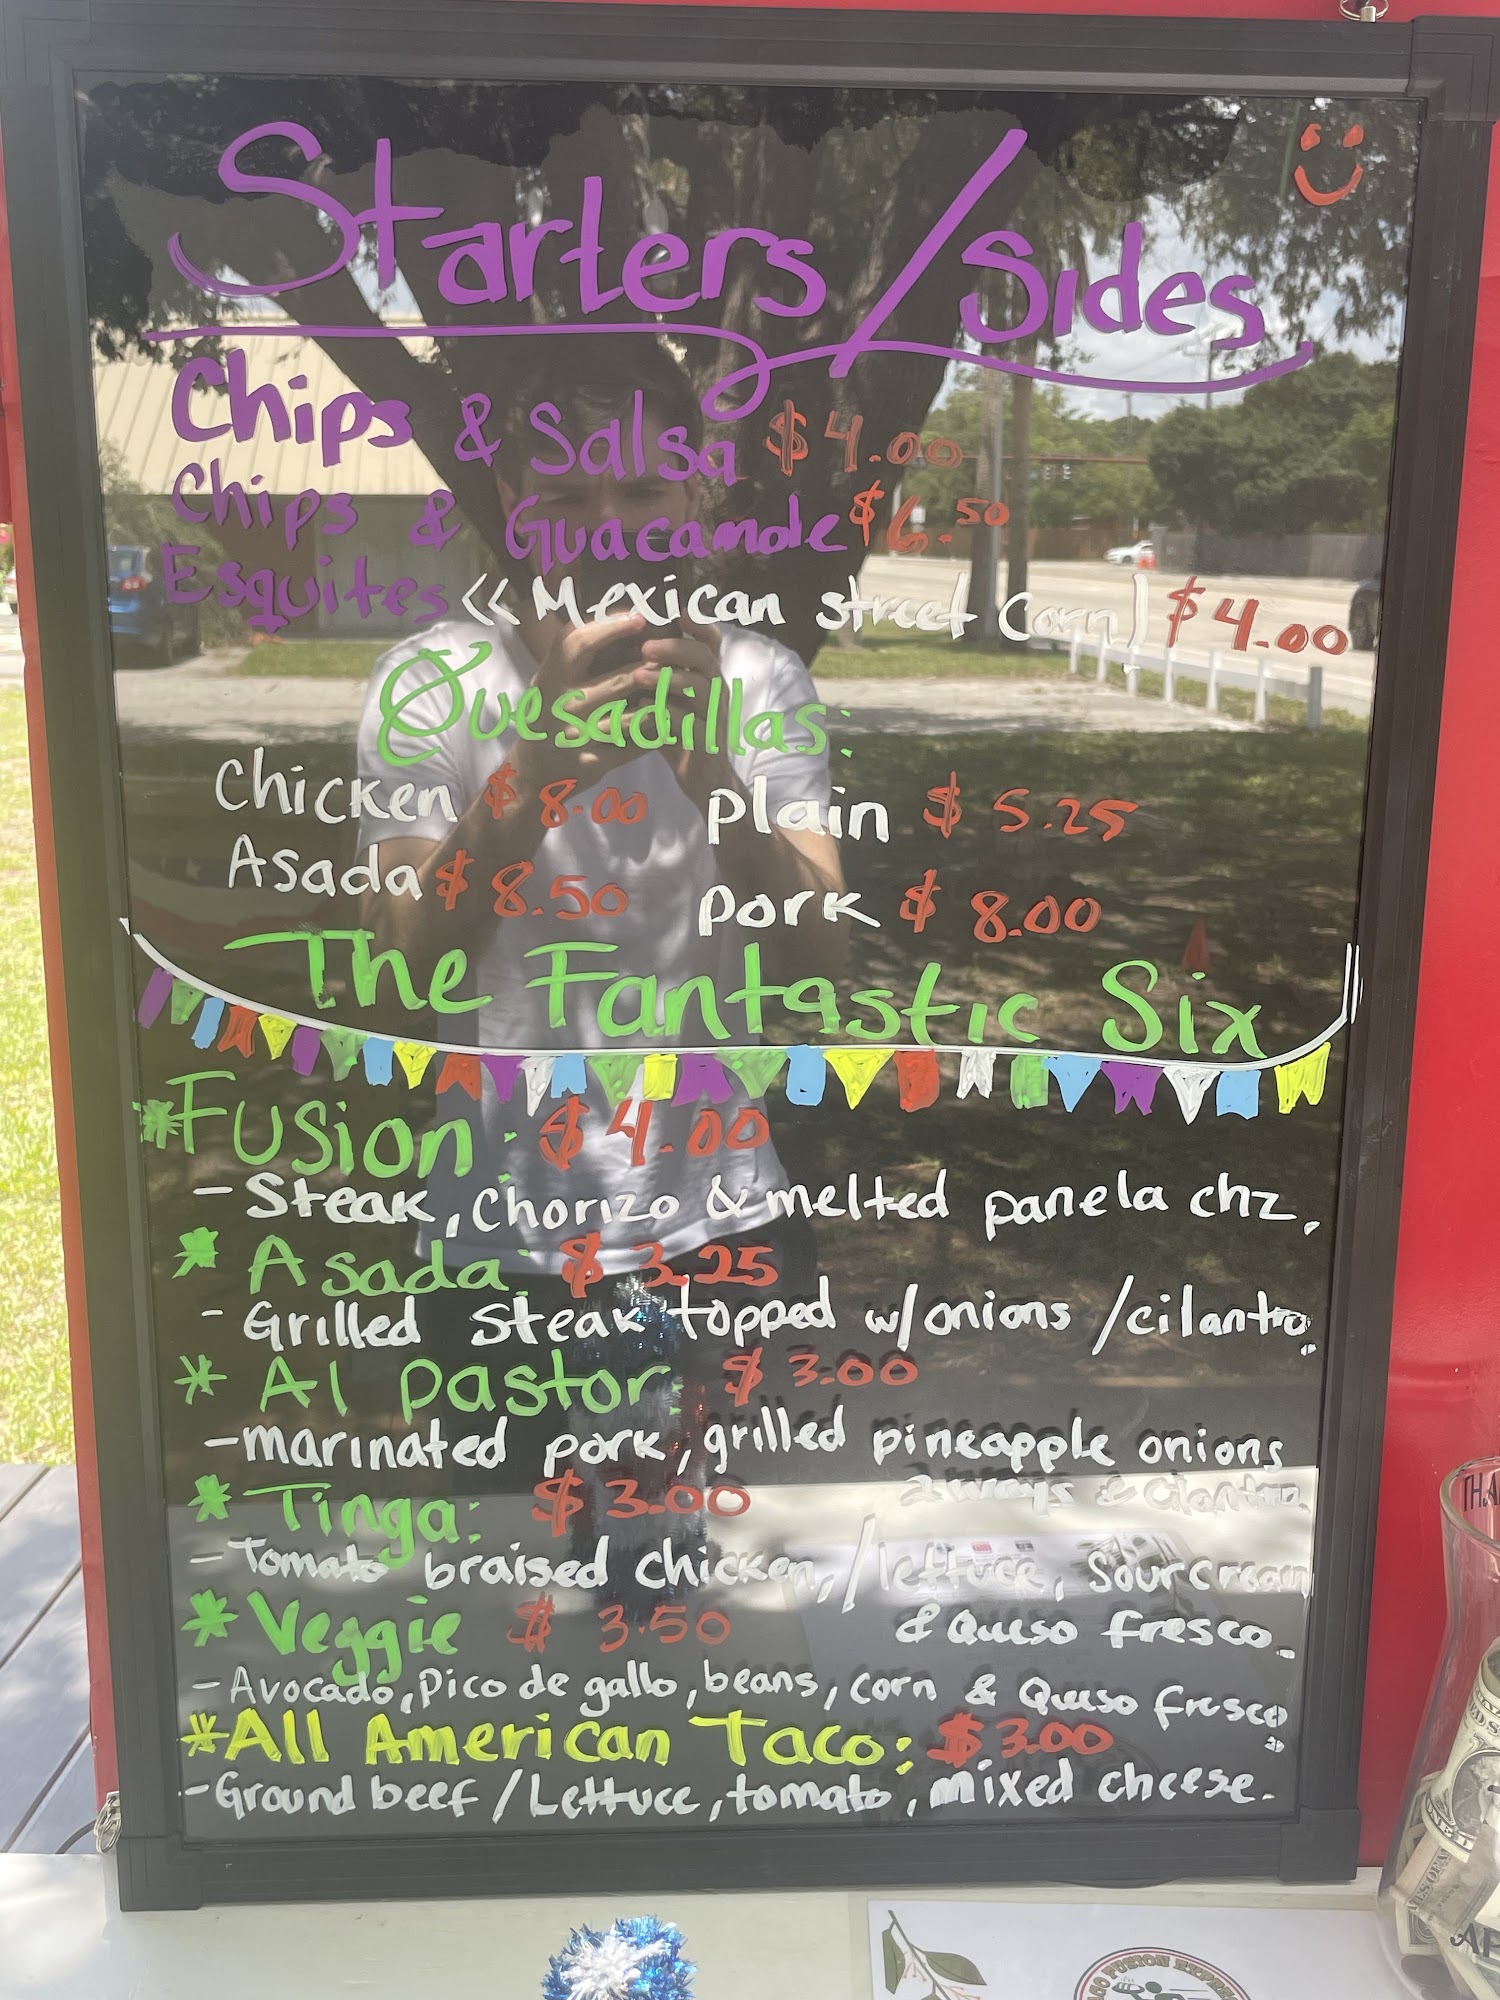 Starters/Sides
Chips & Salsa $4.00
Chips & Guacamole $6.50
Esquites (Mexican street corn) $4.00
Quesadillas:
Chicken $8.00 Plain $5.25
Asada $8.50 Pork $8.00
The Fantastic Six
*Fusion: $4.00
- Steak, Chorizo & melted panela chz.
* Asada: $3.25
- Grilled Steak topped w/onions /cilantro.
* Al pastor: $3.00
- marinated pork, grilled pineapple onions
2 ways & cilantro.
* Tinga: $3.00
- Tomato braised chicken, /lettuce, Sour cream
& Queso fresco.
* Veggie $3.50
- Avocado, Pico de gallo, beans, corn & Queso fresco.
*All American Taco: $3.00
- Ground beef /Lettuce, tomato, mixed cheese.
FUSION EXPRE